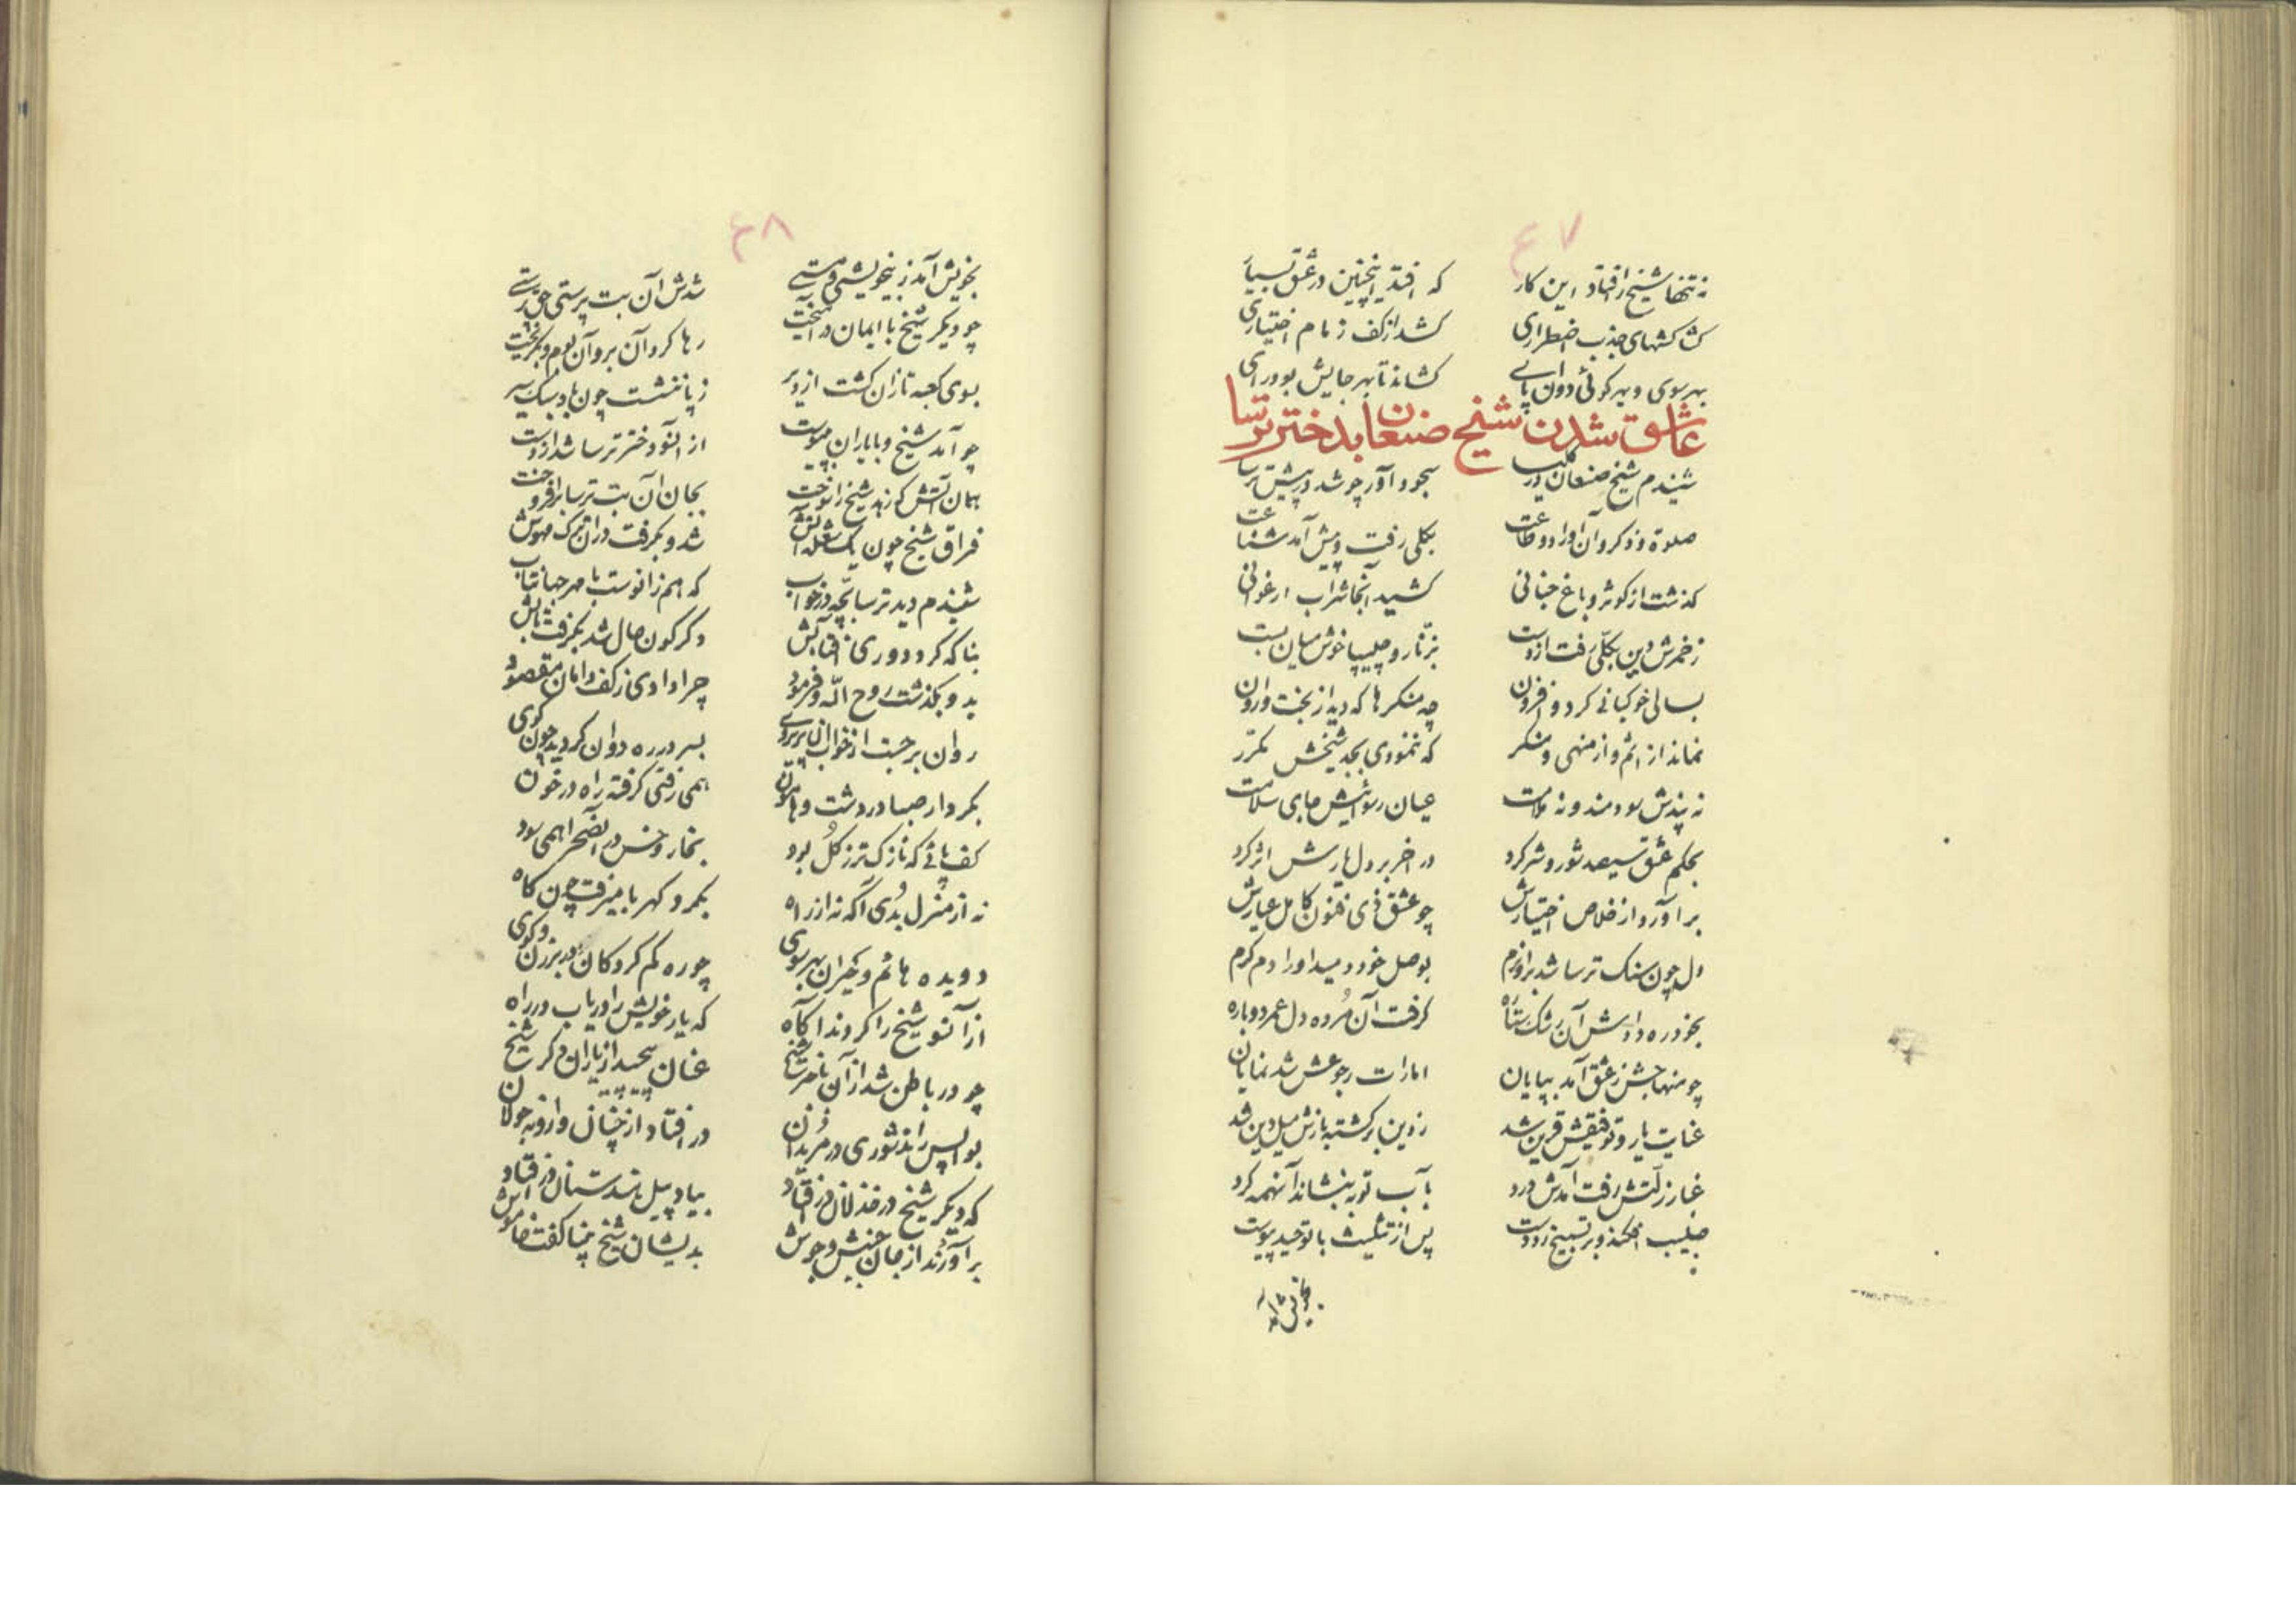 ۴۷
نه تنها شیخ را افتاد این کار
که افتد اینچنین در عشق بسیار
کشاکشهای جذب اضطراری
کشد از کف زمام اختیاری
بهر سوی و بهر کوئی دوان پای
کشاند تا بهر جایش بود رای
عاشق شدن شیخ صنعان بدختر ترسا
شنیدم شیخ صنعان در کلیسا
سجود آور چو شد در پیش ترسا
صلوة و ذکر و آن اوراد و طاعت
بکلی رفت و پیش آمد شناعت
گذشت از کوثر و باغ جنانی
کشید آنجا شراب ارغوانی
ز خمرش دین بکلی رفت از دست
بزنار و چلیپا خوش میان بست
بسالی خوکبانی کرد و افزون
چه منکرها که دید از بخت وارون
نماند از اثم و از منهی و منکر
که ننمودی بجد شیخش مکرر
نه پندش سودمند و نه ملامت
عیان رسوائیش جای سلامت
بحکم عشق سیصد شور و شر کرد
در آخر بر دل یارش اثر کرد
بر آورد از خلاص اختیارش
چو عشق ذی فنون کامل عیارش
دل چون سنگ ترسا شد بر او نرم
بوصل خود دمید او را دم گرم
بخود ره دادش آن رشک ستاره
گرفت آن مرده دل عمر دوباره
چو منهاجش ز عشق آمد بپایان
امارات رجوعش شد نمایان
عنایت یار و توفیقش قرین شد
ز دین برگشته بازش میل دین شد
غبار زلتش رفت آمدش درد
بآب توبه بنشاند آنهمه گرد
صلیب افکند و بر تسبیح زد دست
پس از تثلیث با توحید پیوست
۴۸
بخویش آمد ز بیخویشی و مستی
شدش آن بت پرستی حق پرستی
چو دیگر شیخ با ایمان در آمیخت
رها کرد آن بر و آن بوم و بگریخت
بسوی کعبه تازان گشت از دیر
ز پا ننشست چون باد سبک سیر
چو آمد شیخ و با یاران بپیوست
از آنسو دختر ترسا شد از دست
همان آتش کزو شیخ را سوخت
بجان آن بت ترسا برافروخت
فراق شیخ چون یک شعله آتش
شد و بگرفت در آن ترک مهوش
شنیدم دید ترسابچه در خواب
که همزانوست با مهر جهانتاب
بناگه کرد دوری آفتابش
دگرگون حال شد بگرفت تابش
بدو بگذشت روح الله و فرمود
چرا دادی ز کف دامان مقصود
روان برجست از خواب آن پریروی
بسر در ره دوان گردید چون گوی
بکردار صبا در دشت و هامون
همی رفتی گرفته راه در خون
کف پائی که نازکتر ز گل بود
بخار و خس در آنصحرا همی سود
نه از منزل بدی آگه نه از راه
بگرد کهربا میرفت چون کاه
دویده هائم و حیران بهر سوی
چو ره گم کردگان در برزن و کوی
از آنسو شیخ را کردند آگاه
که یار خویش را دریاب در راه
چو در باطن شد از آن ماجرا شیخ
عنان پیچید از یاران دگر شیخ
بواپس راند شوری در مریدان
در افتاد از چنان وارونه جولان
که دیگر شیخ در خذلان درافتاد
بیاد پیل هندستان درافتاد
برآوردند از جان جنبش و جوش
بدیشان شیخ پنها گفت خاموش